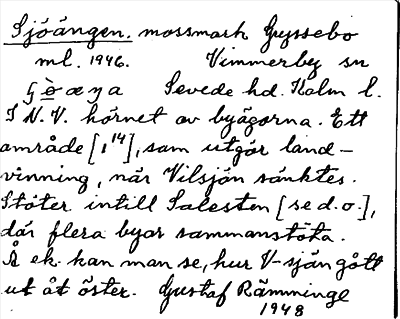 Sjöängen. mossmark Gyssebo
ml. 1946. Vimmerby sn
Sevede hd. Kalm l.
I N.V. hörnet av byägorna. Ett
område [1¹⁴], som utgör land-
vinning, när Vilsjön sänktes.
Stöter intill Salesten [se d.o.],
där flera byar sammanstöta.
Å ek. kan man se, hur V-sjön gått
ut åt öster. Gustaf Rämminge
1948